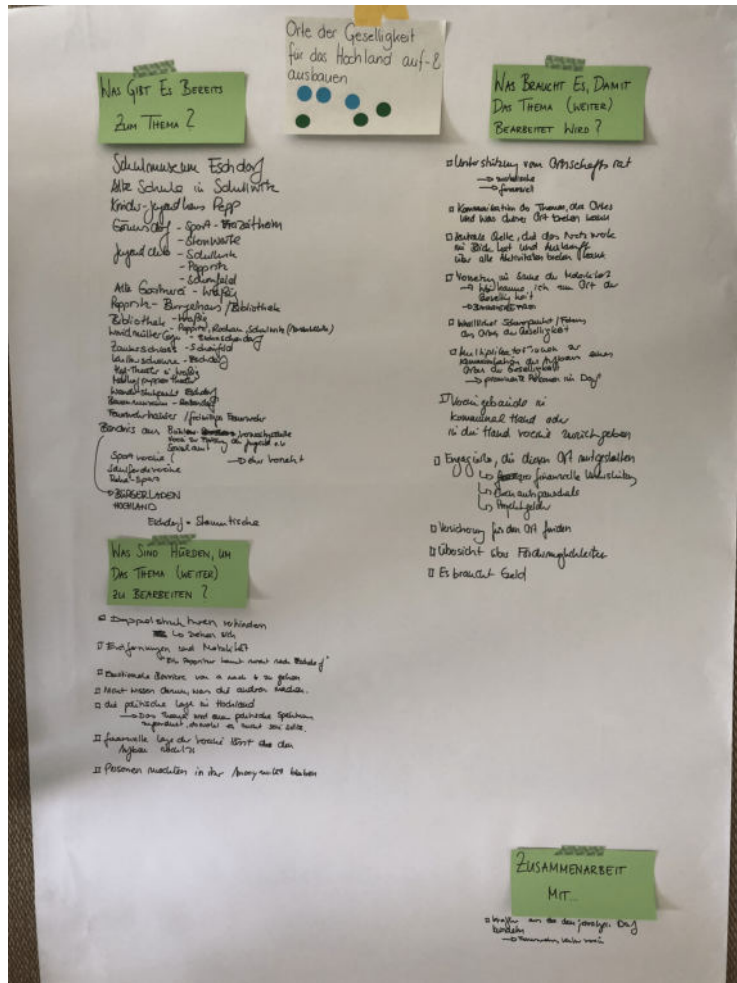 Orte der Geselligkeit
für das Hochland auf- &
ausbauen
WAS GIBT ES BEREITS
ZUM THEMA?
Schulmuseum Eschdorf
Alte Schule in Schullwitz
Kinder-Jugendhaus Pepp
Gönnsdorf - Sport- Freizeitheim
- Sternwarte
Jugendclub - Schullwitz
- Pappritz
- Schönfeld
Alte Gärtnerei - Weißig
Pappritz - Bürgerhaus / Bibliothek
Bibliothek - Weißig
- Pappritz, Rochau, Schullwitz
Zauberschloss - Schönfeld
- Eschdorf
Hof-Theater in Weißig
Eschdorf
Bauernmuseum -
Feuerwehrhäuser / freiwillige Feuerwehr
Bündnis aus
Sozialamt
Sportvereine
Schulfördervereine
Reha-Sport
→ BÜRGERLADEN
HOCHLAND
Eschdorf = Stammtische
WAS SIND HÜRDEN, UM
DAS THEMA (WEITER)
ZU BEARBEITEN?
Doppelstrukturen verhindern
↳ ziehen sich
Entfernungen und Mobilität
"Ein Pappritzer kommt nicht nach Eschdorf"
Emotionale Barriere von a nach b zu gehen
Nicht wissen darum, was die anderen machen.
die politische Lage im Hochland
→ Das Thema wird einem politische Spektrum
zugeordnet, obwohl es nicht sein sollte.
finanzielle Lage der Vereine lässt den
Personen möchten in ihr Anonymität bleiben
WAS BRAUCHT ES, DAMIT
DAS THEMA (WEITER)
BEARBEITET WIRD?
Unterstützung vom Ortschaftsrat
→ finanziell
Kommunikation des Themas, des Ortes
und was dieser Ort bieten kann
zentrale Stelle, die das Netzwerk
im Blick hat und Auskunft
über alle Aktivitäten bieten kann
im Sinne der Mobilität
→ Wie komme ich zum Ort der
Geselligkeit
→ Barrierefrei
Inhaltlicher Schwerpunkt / Fokus
des Ortes der Geselligkeit
Multiplikator*innen zur
Kommunikation des Aufbaus eines
Ortes der Geselligkeit
→ prominente Personen im Dorf
Vereinsgebäude in
kommunal Hand oder
in die Hand Vereine zurückgeben
Engagierte, die diesen Ort mitgestalten
↳ finanzielle Unterstützung
↳ Ehrenamtspauschale
↳ Projektgelder
Versicherung für den Ort finden
Übersicht über Fördermöglichkeiten
Es braucht Geld
ZUSAMMENARBEIT
MIT...
Kräfte aus dem jeweilgn. Dorf
bündeln
→ Feuerwehr,